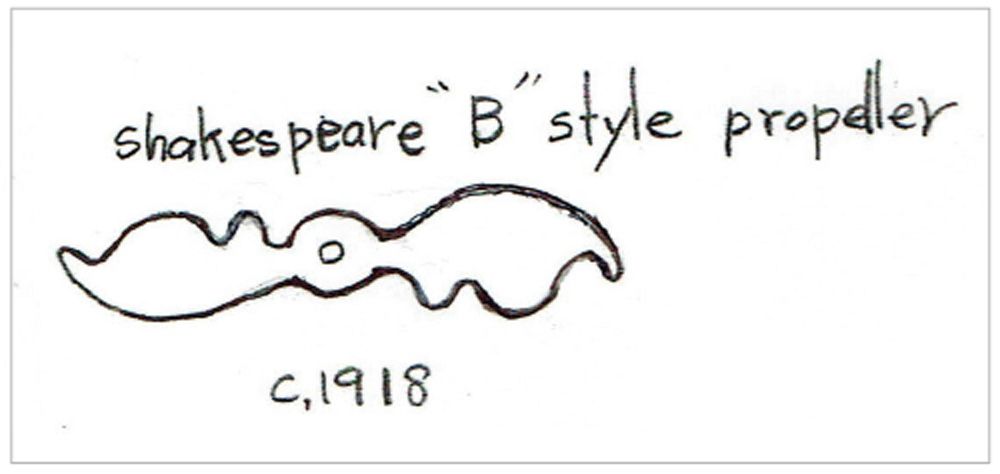 shakespeare "B" style propeller
c,1918